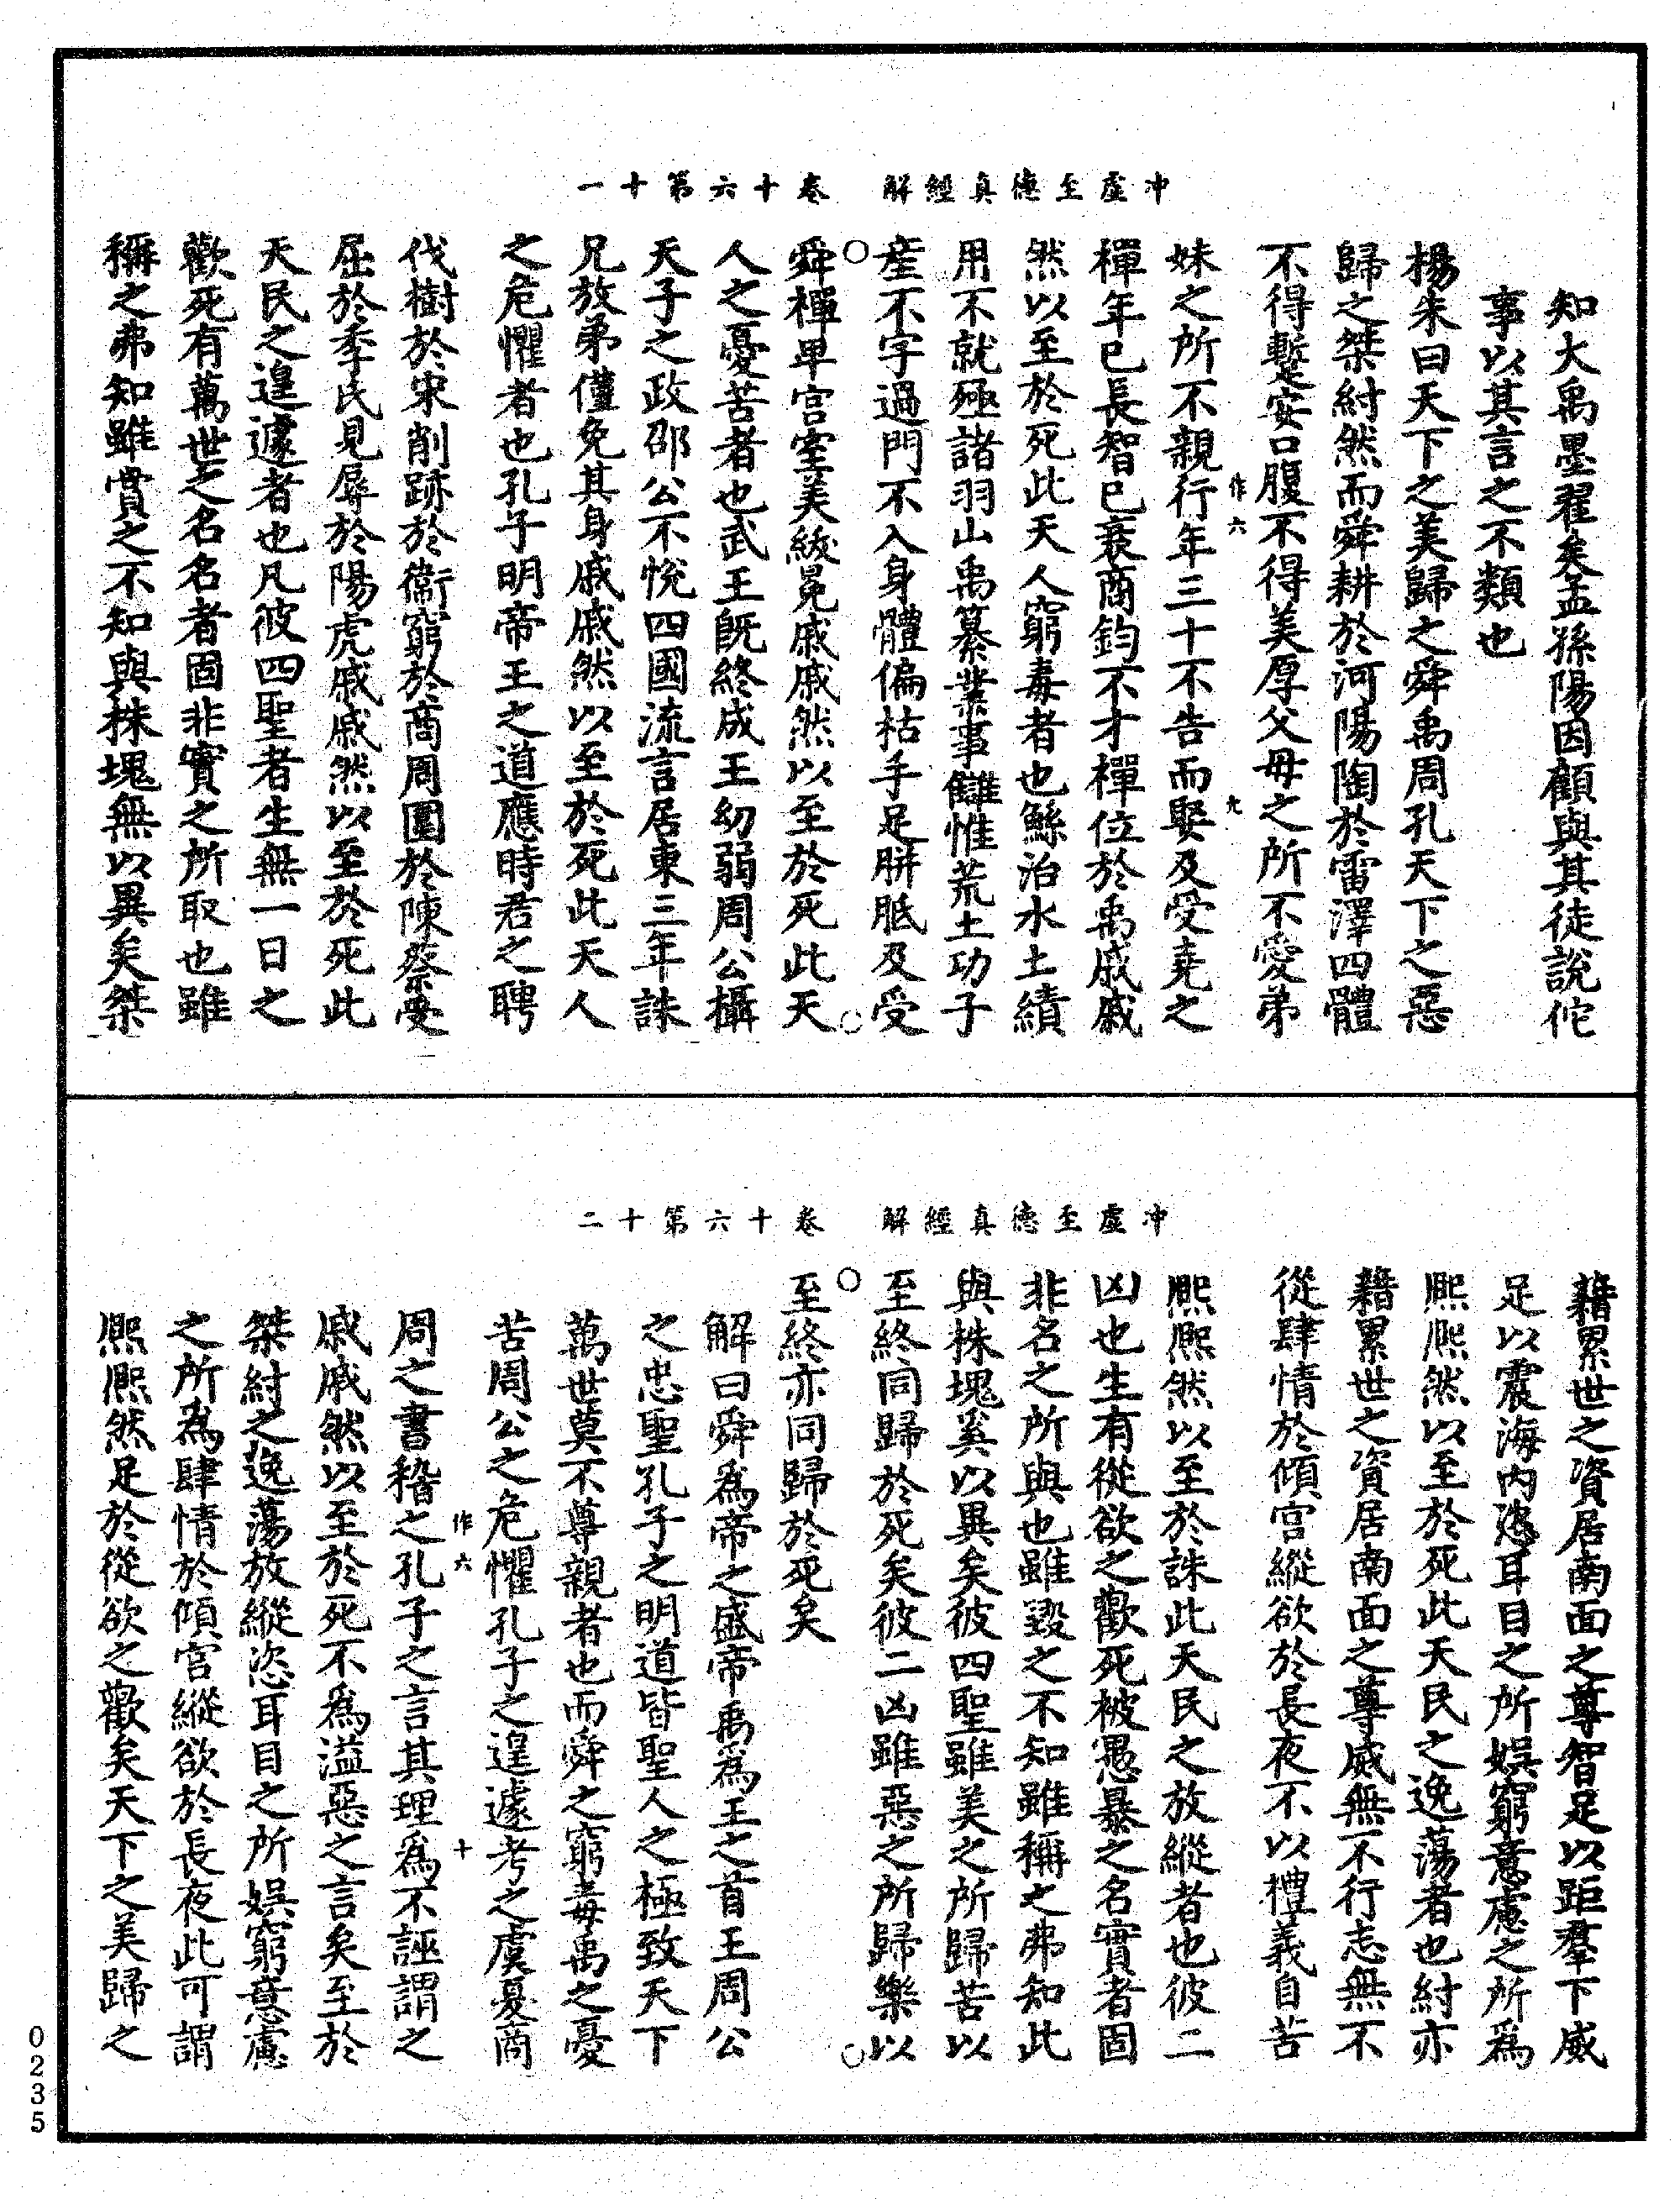 冲虛至德真經解　卷十六第十一
知大禹墨翟矣孟孫陽因顧與其徒說佗
事以其言之不類也
楊朱曰天下之美歸之舜禹周孔天下之惡
歸之桀紂然而舜耕於河陽陶於雷澤四體
不得蹔安口腹不得美厚父母之所不愛弟
作六　九
妹之所不親行年三十不告而娶及受堯之
禪年已長智已衰商鈞不才禪位於禹戚戚
然以至於死此天人窮毒者也鯀治水土績
用不就殛諸羽山禹纂業事讎惟荒土功子
產不字過門不入身體偏枯手足胼胝及受
舜禪卑宮室美紱冕戚戚然以至於死此天
人之憂苦者也武王旣終成王幼弱周公攝
天子之政邵公不悅四國流言居東三年誅
兄放弟僅免其身戚戚然以至於死此天人
之危懼者也孔子明帝王之道應時君之聘
伐樹於宋削跡於衞窮於商周圍於陳蔡受
屈於季氏見辱於陽虎戚戚然以至於死此
天民之遑遽者也凡彼四聖者生無一日之
歡死有萬世之名名者固非實之所取也雖
稱之弗知雖賞之不知與株塊無以異矣桀
冲虛至德真經解　卷十六第十二
藉累世之資居南面之尊智足以距羣下威
足以震海內恣耳目之所娛窮意慮之所爲
熈熈然以至於死此天民之逸蕩者也紂亦
藉累世之資居南面之尊威無不行志無不
從肆情於傾宮縱欲於長夜不以禮義自苦
熈熈然以至於誅此天民之放縱者也彼二
凶也生有從欲之歡死被愚暴之名實者固
非名之所與也雖毀之不知雖稱之弗知此
與株塊奚以異矣彼四聖雖美之所歸苦以
至終同歸於死矣彼二凶雖惡之所歸樂以
至終亦同歸於死矣
解曰舜爲帝之盛帝禹爲王之首王周公
之忠聖孔子之明道皆聖人之極致天下
萬世莫不尊親者也而舜之窮毒禹之憂
苦周公之危懼孔子之遑遽考之虞夏商
作六　十
周之書稽之孔子之言其理爲不誣謂之
戚戚然以至於死不爲溢惡之言矣至於
桀紂之逸蕩放縱恣耳目之所娛窮意慮
之所爲肆情於傾宮縱欲於長夜此可謂
熈熈然足於從欲之歡矣天下之美歸之
0235